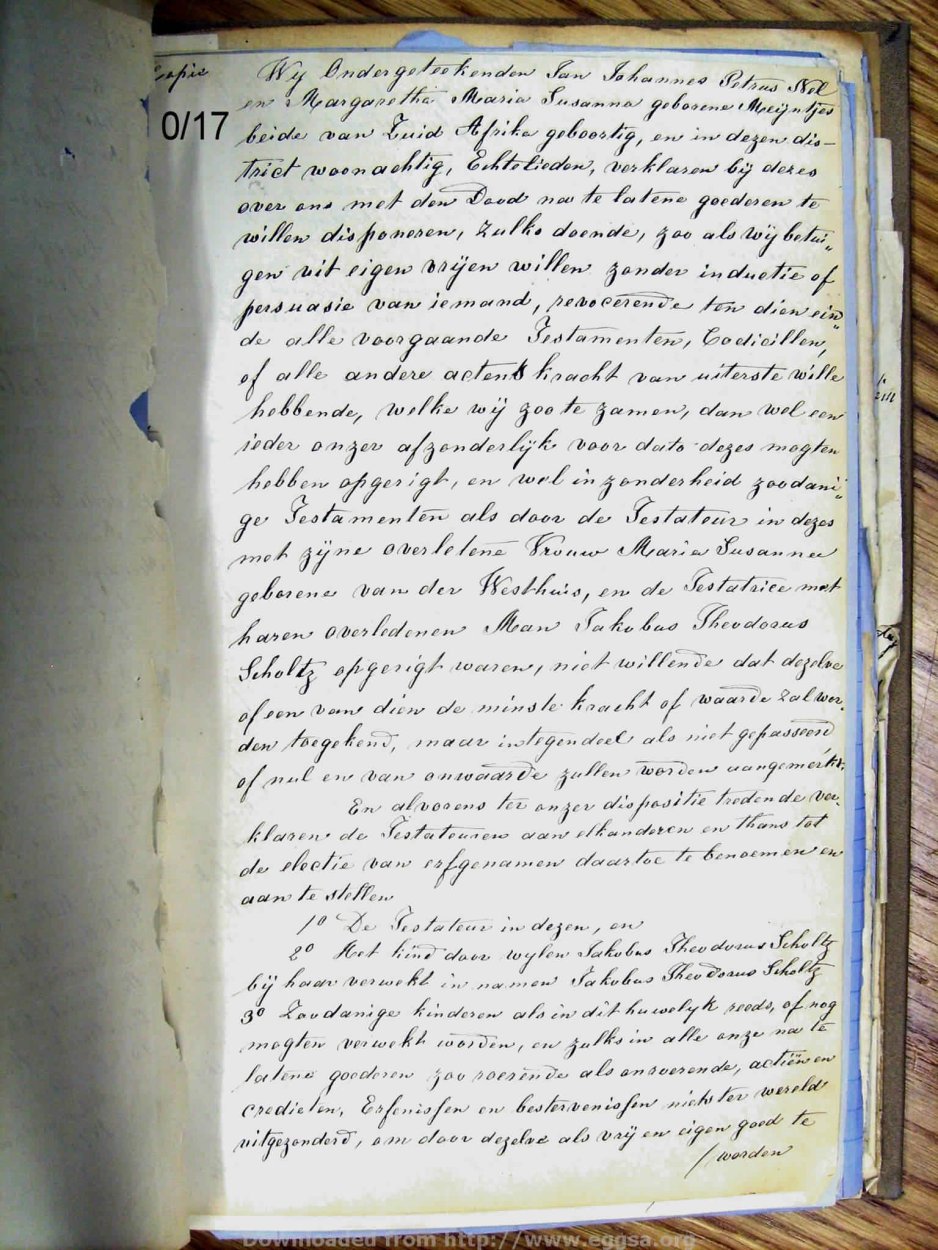 Copie
0/17
Wy Ondergeteekenden Jan Johannes Petrus Nel
en Margaretha Maria Susanna geborene Meijntjes
beide van Zuid Afrika geboortig, en in dezen dis-
trict woonachtig, Echtelieden, verklaren bij dezes
over ons met den Dood na te latene goederen te
willen disponeren, Zulks doende, zoo als wij betui„
gen uit eigen vrijen willen zonder inductie of
persuasie van iemand, revocerende ten dien ein„
de alle voorgaande Testamenten, Codicillen,
of alle andere acten kracht van uiterste wille
hebbende, welke wij zoo te zamen, dan wel een
ieder onzer afzonderlijk voor dato dezes mogten
hebben opgerigt, en wel in zonderheid zoodani„
ge Testamenten als door de Testateur in dezes
met zijne overletene Vrouw Maria Susanna
geborene van der Westhuis, en de Testatrice met
haren overledenen Man Jakobus Theodorus
Scholtz opgerigt waren, niet willende dat dezelve
of een van dien de minste kracht of waarde zal wor„
den toegekend, maar in tegendeel als niet gepasseerd
of nul en van onwaarde zullen worden aangemerkt.
En alvorens ter onzer dispositie tredende ver„
klaren de Testateuren aan elkanderen en thans tot
de electie van erfgenamen daartoe te benoemen en
aan te stellen
1º De Testateur in dezen, en
2º Het kind door wylen Jakobus Theodorus Scholtz
bij haar verwekt in namen Jakobus Theodorus Scholtz
3º Zoodanige kinderen als in dit huwelyk reeds, of nog
mogten verwekt worden, en zulks in alle onze na te
latene goederen zoo roerende als onroerende, actiën en
credieten, Erfenissen en bestervenissen niets ter wereld
uitgezonderd, om door dezelve als vrij en eigen goed te
/ worden
Downloaded from http://www.eggsa.org